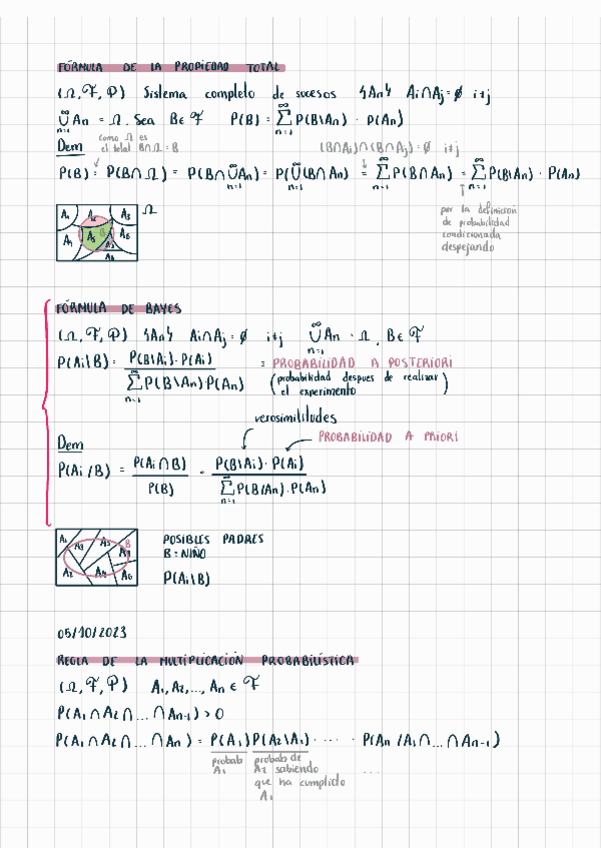 FÓRMULA DE LA PROPIEDAD TOTAL
(Ω, F, P) Sistema completo de sucesos {An} Ai∩Aj=∅ i≠j
∞∪n=1 An = Ω. Sea B∈F P(B) = ∞Σn=1 P(B\An) · P(An)
Dem como Ω es el total B∩Ω=B (B∩Ai)∩(B∩Aj)=∅ i≠j
P(B) = P(B∩Ω) = P(B∩∞∪n=1 An) = P(∞∪n=1 (B∩An)) = ∞Σn=1 P(B∩An) = ∞Σn=1 P(B\An) · P(An)
por la definición
de probabilidad
condicionada
despejando
A1 A2 A3 Ω
A4 A5 B A6
A7
A8
FÓRMULA DE BAYES
(Ω, F, P) {An} Ai∩Aj=∅ i≠j ∞∪n=1 An = Ω, B∈F
P(Ai\B) = P(B\Ai)·P(Ai) / ∞Σn=1 P(B\An)P(An) = PROBABILIDAD A POSTERIORI
(probabilidad despues de realizar
el experimento)
verosimilitudes
PROBABILIDAD A PRIORI
Dem
P(Ai/B) = P(Ai∩B) / P(B) = P(B\Ai)·P(Ai) / ∞Σn=1 P(B/An)·P(An)
A1 A3 A5 B
A2 A4 A6
POSIBLES PADRES
B = NIÑO
P(Ai\B)
05/10/2023
REGLA DE LA MULTIPLICACIÓN PROBABILÍSTICA
(Ω, F, P) A1, A2, ..., An ∈ F
P(A1∩A2∩...∩An-1) > 0
P(A1∩A2∩...∩An) = P(A1)P(A2\A1)· ···· · P(An/A1∩...∩An-1)
probab
A1
probab de
A2 sabiendo
que ha cumplido
A1
...